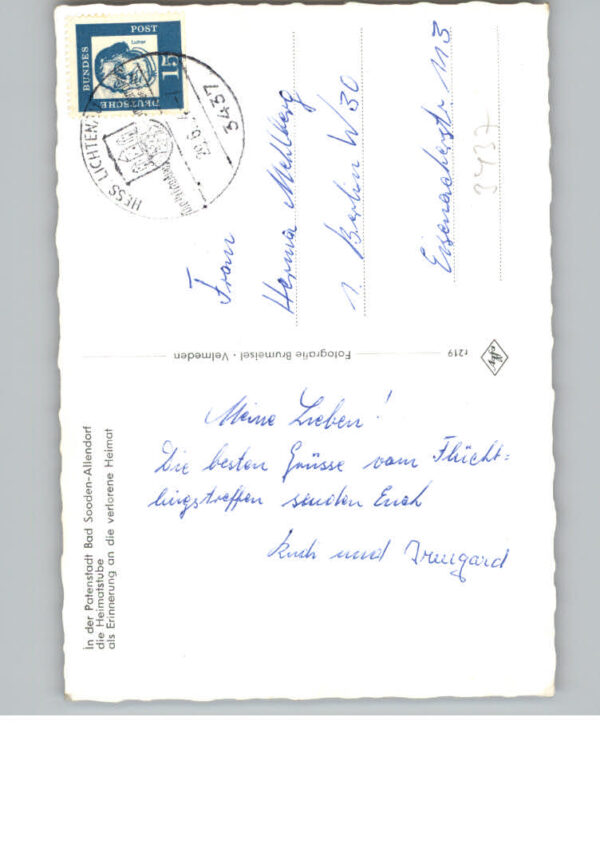 DEUTSCHE
BUNDES
POST
15
Luther
HESS. LICHTENAU
3437
Frau
Herma Mehlberg
1 Berlin W 30
Eisenacherstr. 113
3437
Fotografie Brumeisel · Velmeden
r219
In der Patenstadt Bad Sooden-Allendorf
die Heimatstube
als Erinnerung an die verlorene Heimat
Meine Lieben!
Die besten Grüsse vom Flücht=
lingstreffen senden Euch
und Irmgard